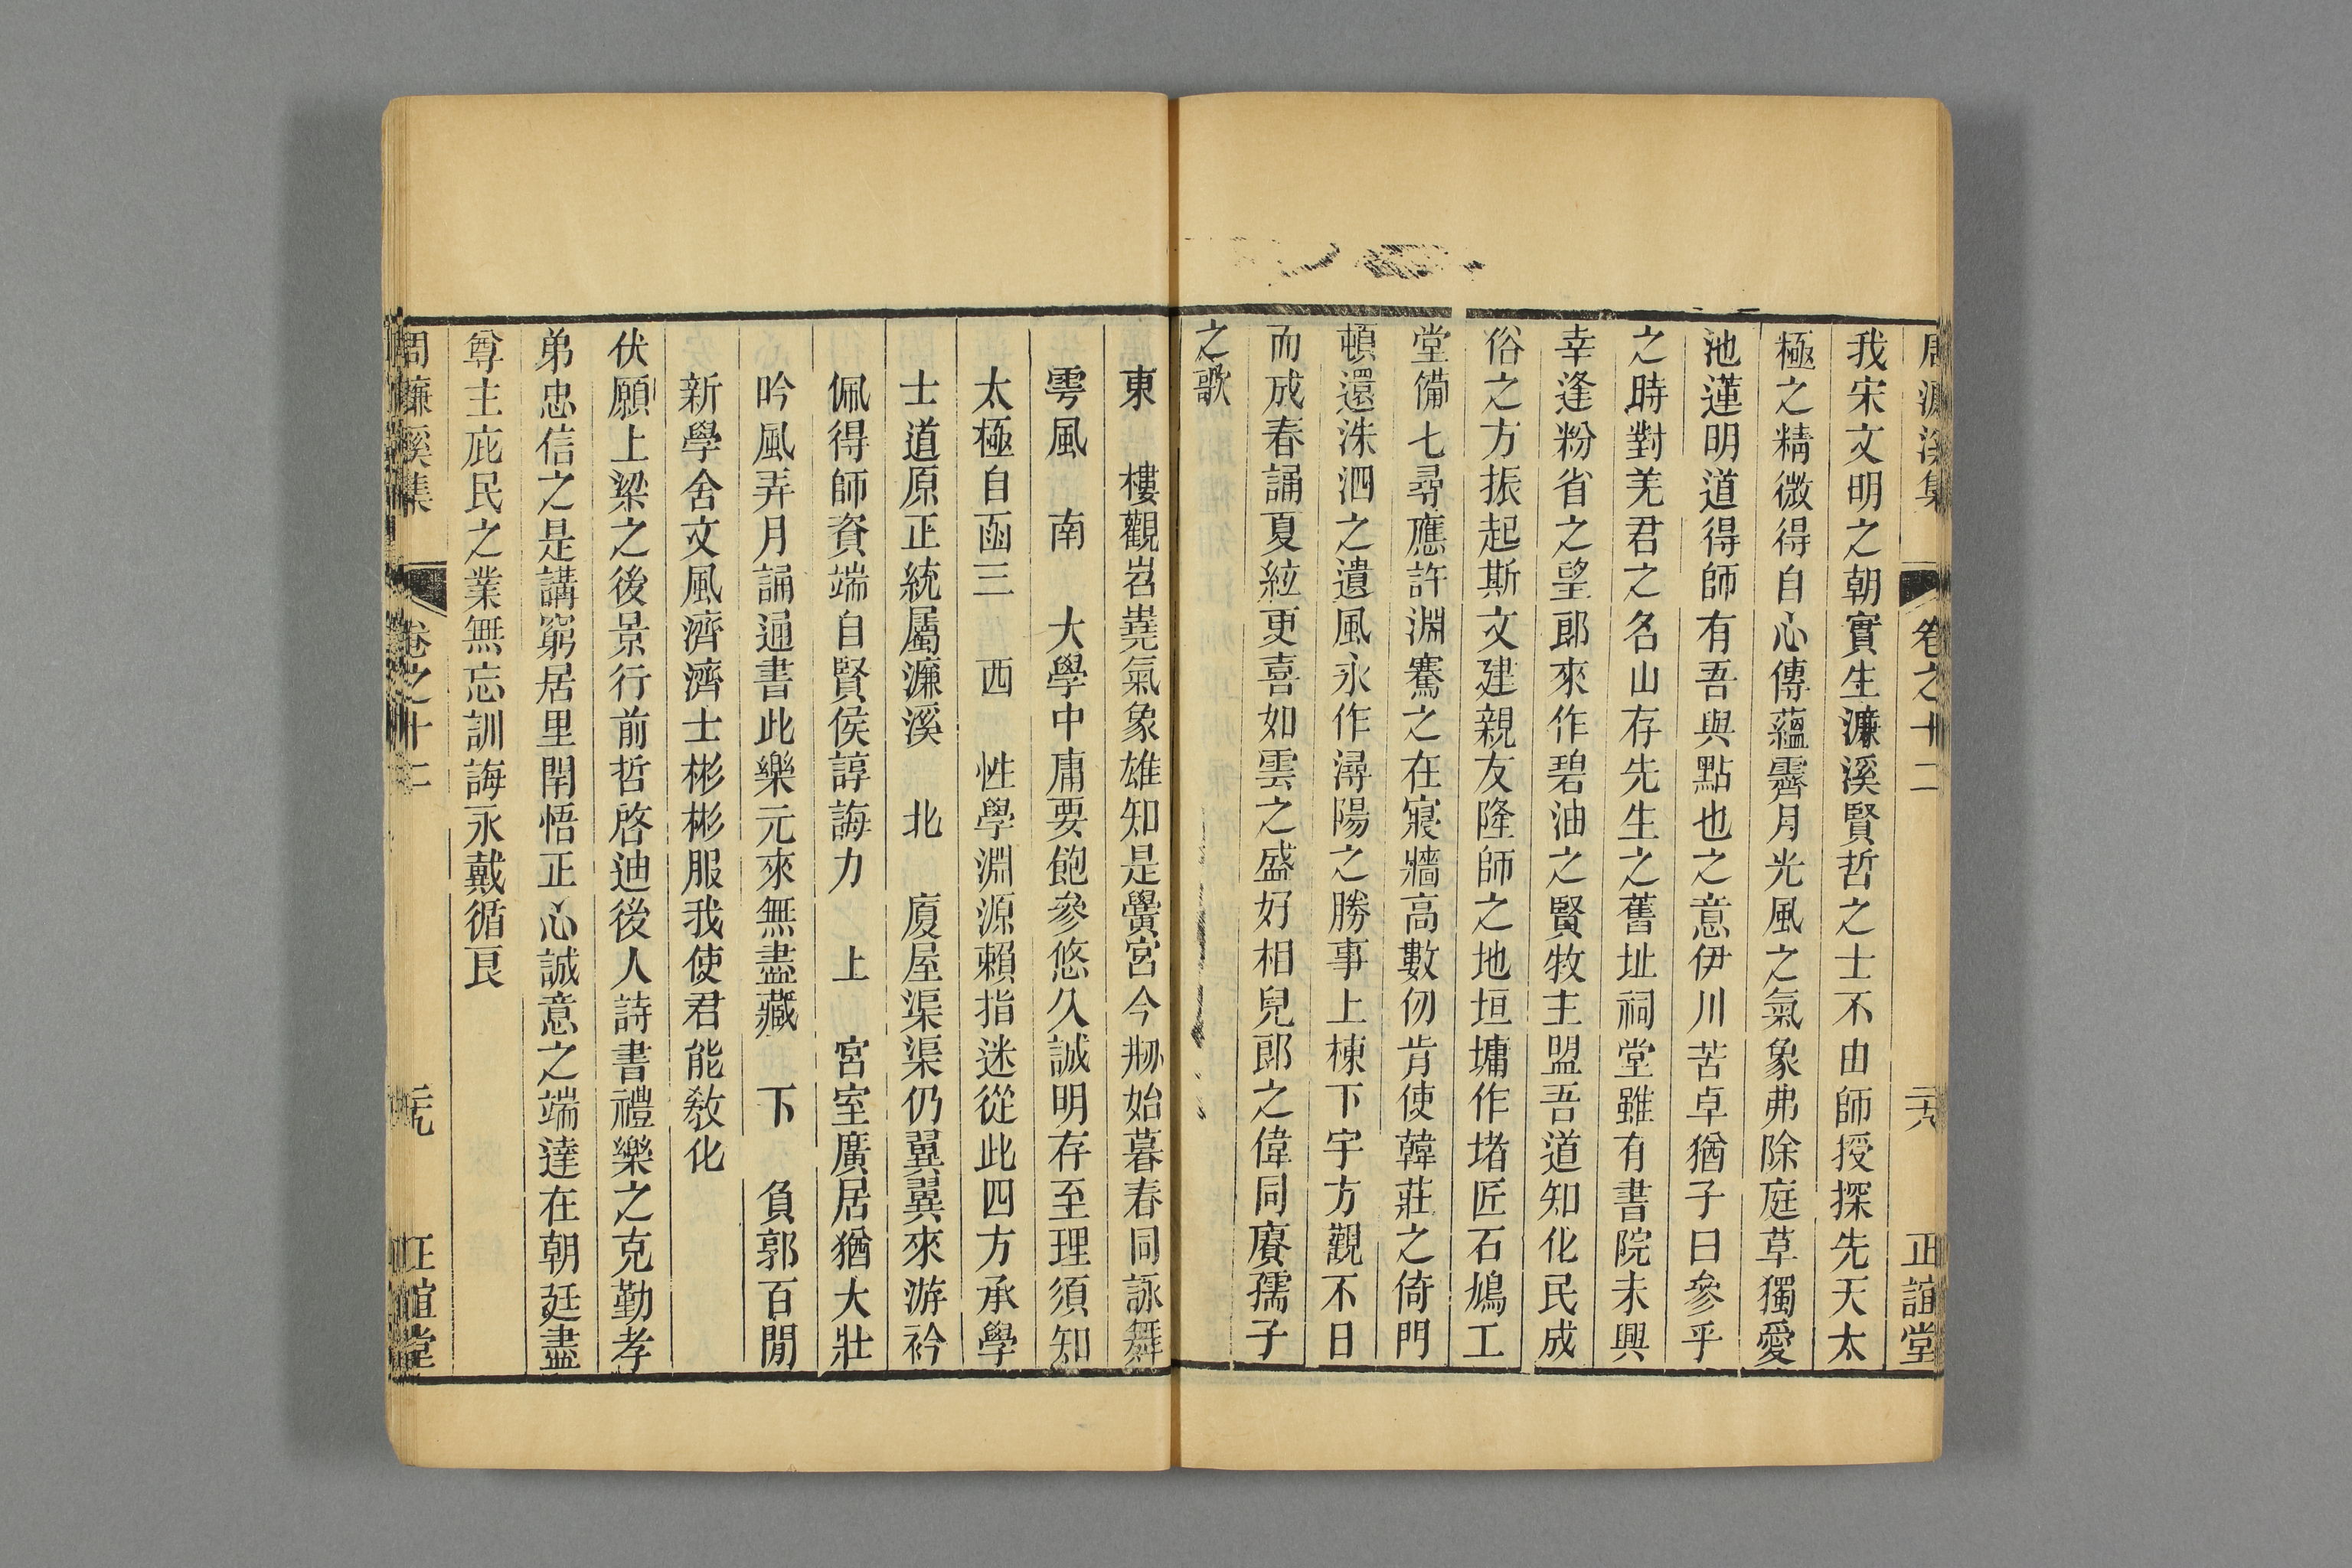 周濂溪集 卷之十二 二六 正誼堂
我宋文明之朝實生濂溪賢哲之士不由師授探先天太
極之精微得自心傳蘊霽月光風之氣象弗除庭草獨愛
池蓮明道得師有吾與點也之意伊川苦卓猶子曰參乎
之時對羌君之名山存先生之舊址祠堂雖有書院未興
幸逢粉省之望郎來作碧油之賢牧主盟吾道知化民成
俗之方振起斯文建親友隆師之地垣墉作堵匠石鳩工
堂備七尋應許淵騫之在寢牆高數仞肯使韓莊之倚門
頓還洙泗之遺風永作潯陽之勝事上棟下宇方觀不日
而成春誦夏絃更喜如雲之盛好相兒郎之偉同賡孺子
之歌
東 樓觀岧嶤氣象雄知是黌宮今刱始暮春同詠舞
雩風 南 大學中庸要飽參悠久誠明存至理須知
太極自函三 西 性學淵源賴指迷從此四方承學
士道原正統屬濂溪 北 廈屋渠渠仍翼翼來游衿
佩得師資端自賢侯諄誨力 上 宮室廣居猶大壯
吟風弄月誦通書此樂元來無盡藏 下 負郭百閒
新學舍文風濟濟士彬彬服我使君能敎化
伏願上梁之後景行前哲啓迪後人詩書禮樂之克勤孝
弟忠信之是講窮居里閈悟正心誠意之端達在朝廷盡
尊主庇民之業無忘訓誨永戴循良
周濂溪集 卷之十二 二九 正誼堂